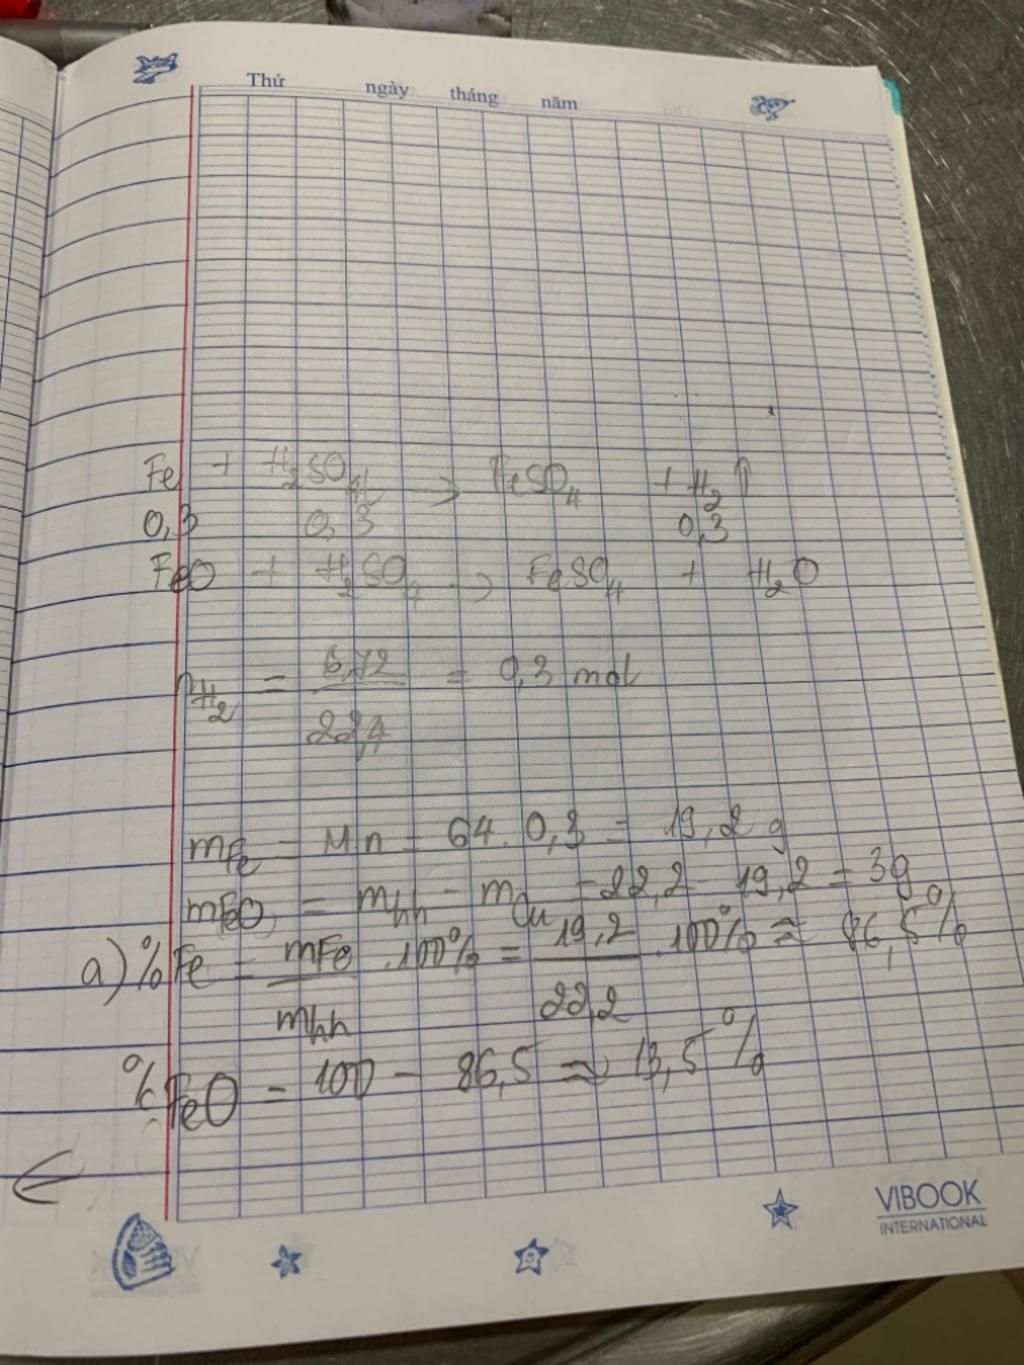 Thứ ngày tháng năm
Fe + H₂SO₄ → FeSO₄ + H₂↑
0,3 0,3 0,3
FeO + H₂SO₄ → FeSO₄ + H₂O
nH₂ = 6,72 / 22,4 = 0,3 mol
mFe = M.n = 64.0,3 = 19,2 g
mFeO = mhh - mCu = 22,2 - 19,2 = 3g
a) % Fe = mFe / mhh .100% = 19,2 / 22,2 .100% ≈ 86,5%
% FeO = 100 - 86,5 ≈ 13,5%
VIBOOK
INTERNATIONAL